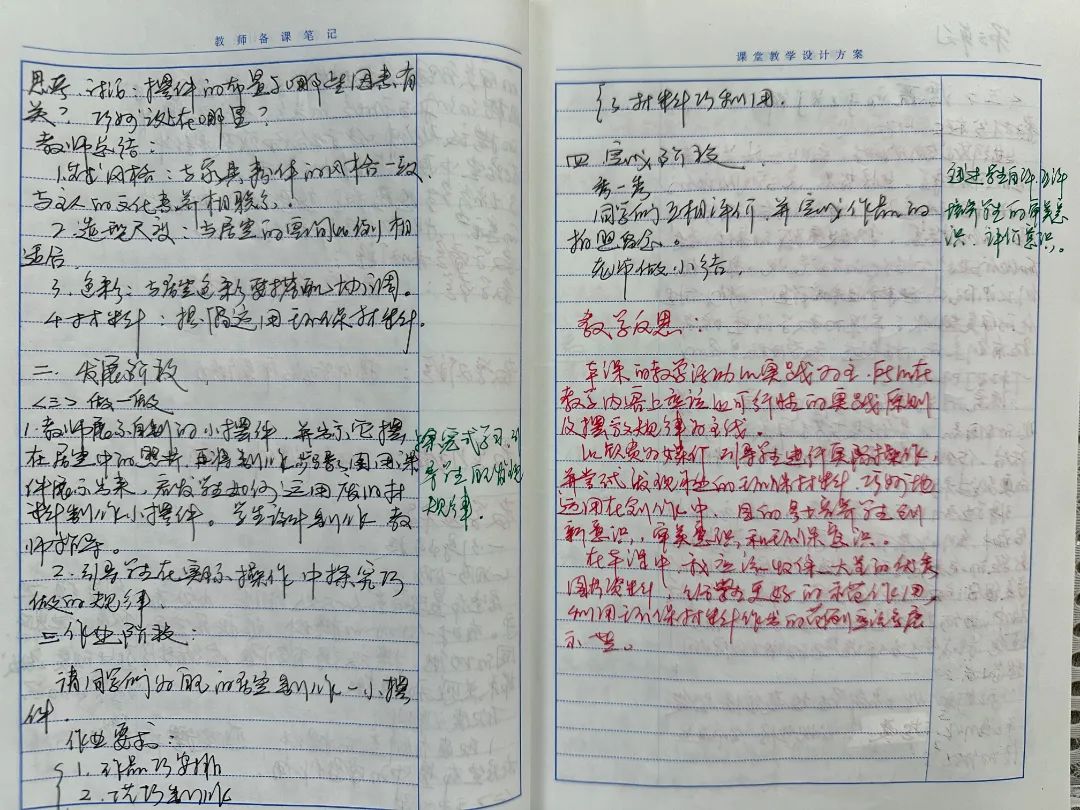 教师备课笔记
思考、讨论：摆件的布置与哪些因素有
关？巧妙设在哪里？
教师总结：
1.款式风格：与家具摆件的风格一致，
与主人的文化素养相联系。
2.造型尺度：与居室的空间比例相
适合
3.色彩：与居室色彩要搭配、协调。
4.材料：提倡运用环保材料。
二、发展阶段
<三>做一做
1.教师展示自制的小摆件，并告示它摆
在居室中的照片，再将制作步骤图用课
件展示出来，启发学生如何运用废旧材
料制作小摆件。学生设计制作，教
师指导。
探究式学习，引
导学生
规律。
2.引导学生在实际操作中探究巧
做的规律。
三 作业阶段：
请同学们为自己的居室制作一小摆
件。
作业要求：
1.作品巧安排
2.技巧制作
课堂教学设计方案
3.材料巧利用。
四 完成阶段
秀一秀
同学们互相评价，并完成作品的
拍照留念。
老师做小结。
通过学生自评、互评
培养学生的审美意
识、评价意识。
教学反思：
本课的教学活动以实践为主，所以在
教学内容上应该以可行性的实践原则
及摆放规律为主线。
以欣赏为媒介，引导学生进行实际操作，
并尝试发现独特的环保材料，巧妙地
运用在创作中，目的是培养学生创
新意识，审美意识和环保意识。
在本课中，我应该收集大量的优秀
图片资料，给学生更好的示范作用，
利用环保材料作出的范例应该多展
示一些。